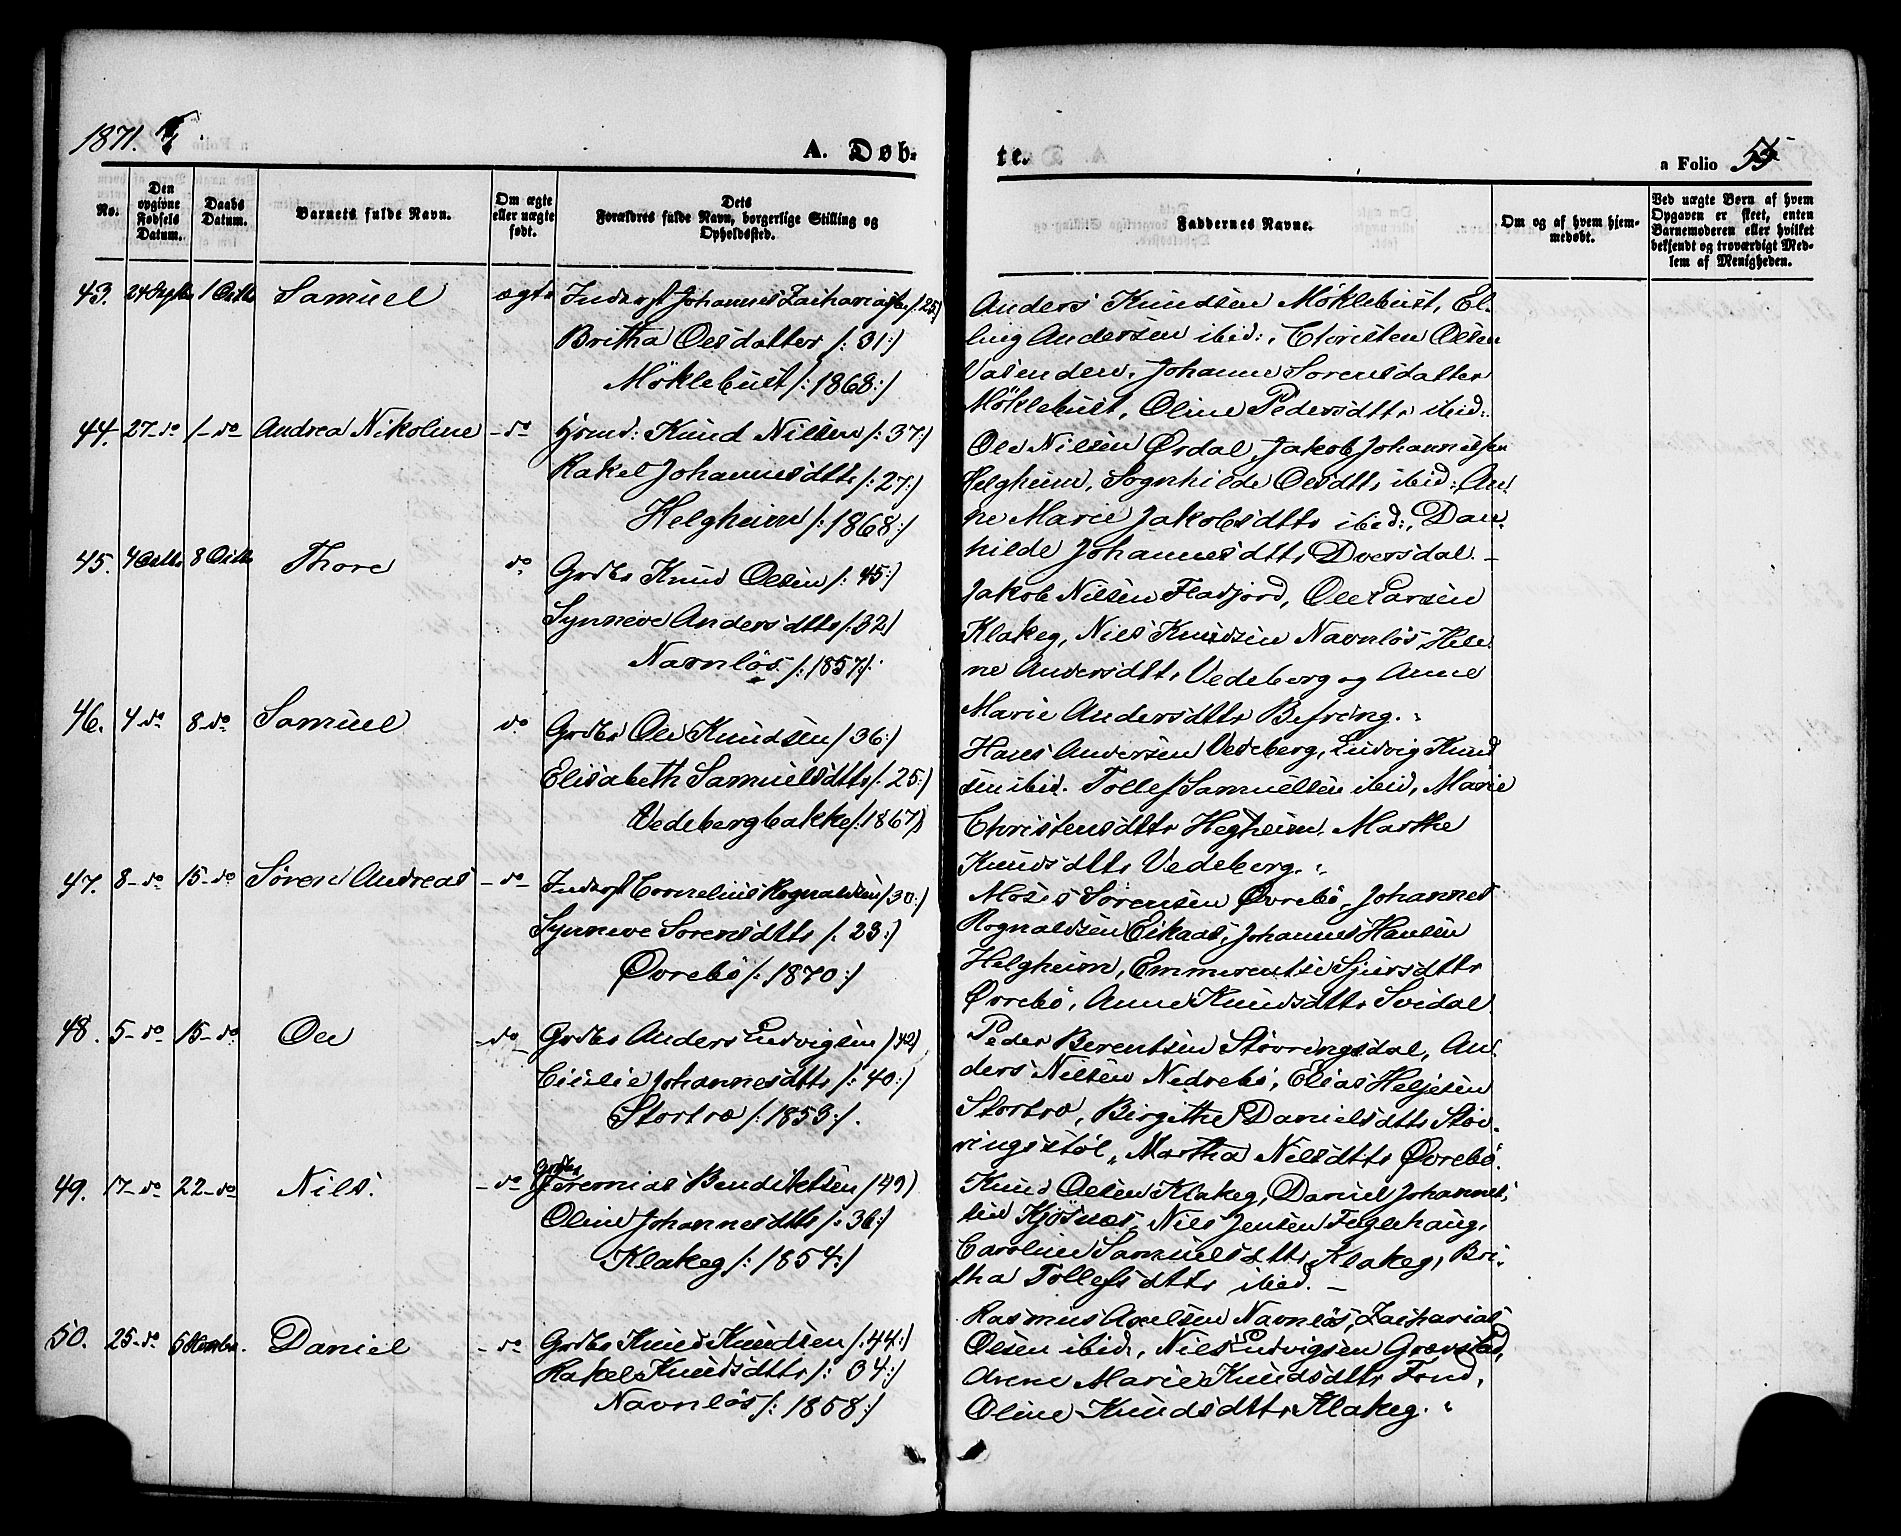 1871.
A. Døb-
te.
a Folio 55
No.
Den opgivne Fødsels Datum.
Daabs Datum.
Barnets fulde Navn.
Om ægte eller uægte født.
Dets Forældres fulde Navn, borgerlige Stilling og Opholdssted.
Faddernes Navne.
Om og af hvem hjemmedøbt.
Ved uægte Børn af hvem Opgaven er skeet, enten Barnemoderen eller hvilket bekjendt og troværdigt Medlem af Menigheden.
43. 24 Septbr 1 Octbr Samuel ægte Inderst Johannes Zachariassen /: 25:/
Britha Olesdatter /: 31:/
Möklebust /: 1868:/
Anders Knudsen Möklebust, El-
ling Andersen ibid:, Christen Olsen
Vasenden, Johanne Sorensdatter
Möklebust, Oline Pedersdttr ibid:
44. 27-do 1-do Andrea Nikoline -do Hsmd: Knud Nilsen /: 37:/
Rakel Johannesdttr /: 27:/
Helgheim /: 1868:/
Ole Nilsen Årdal, Jakob Johannessen
Helgheim, Sognhilde Olsdttr ibid: An-
ne Marie Jakobsdttr ibid:, Dan-
hilde Johannesdttr Dvergsdal. -
45. 4 Octbr 8 Octbr Thore do Grdbr Knud Olsen /: 45:/
Synneve Andersdttr /: 32/
Navnlös /: 1857:/.
Jakob Nilsen Fladjord, Ole Larsen
Klakeg, Nils Knudsen Navnlös, Hele-
ne Andersdttr Vedeberg og Anne
Marie Andersdttr Befring.
46. 4 do 8-do Samuel do Grdbr Ole Knudsen / 36:/
Elisabeth Samuelsdttr /: 25:/
Vedebergbakke /: 1867/
Hans Andersen Vedeberg, Ludvig Knud
sen ibid. Tollef Samuelsen ibid, Marie
Christensdttr Hegheim, Marthe
Knudsdttr Vedeberg.
47. 8-do 15-do Søren Andreas -do- Inderst Cornelius Rognaldsen / 30:/
Synneve Sorensdttr /: 23:/
Øvrebö /: 1870:/
Moses Sörensen Øvrebö, Johannes
Rognaldsen Eikaas, Johannes Hansen
Helgheim, Emmerentse Sjursdttr
Øvrebö, Anne Knudsdttr Svidal.
48. 5-do 15-do Ole -do Grdbr Anders Ludvigsen / 42/
Cicilie Johannesdttr /: 40:/
Stortro /: 1853:/.
Peder Berentsen Stövringsdal, An-
ders Nilsen Nedrebö, Elias Heljesen
Stortro, Birgithe Danielsdttr Stöv-
ringsstöl, Martha Nilsdttr Øvrebö.
49. 17-do 22-do Nils. -do Grdbr
Jeremias Bendiktsen / 49/
Oline Johannesdttr /: 36:/
Klakeg /: 1854:/
Knud Olsen Klakeg, Daniel Johannes-
sen Kjösnes, Nils Jensen Fuglehaug,
Caroline Samuelsdttr Klakeg, Bri-
tha Tollefsdttr ibid. -
50. 25-do Daniel -do Grdbr Knud Knudsen /: 44:/
Rakel Knudsdttr /: 34:/
Navnlös /: 1858:/
Rasmus Axelsen Navnlös, Zacharias
Olsen ibid, Nils Ludvigsen Grovstad,
Anne Marie Knudsdttr Fond,
Oline Knudsdttr Klakeg.